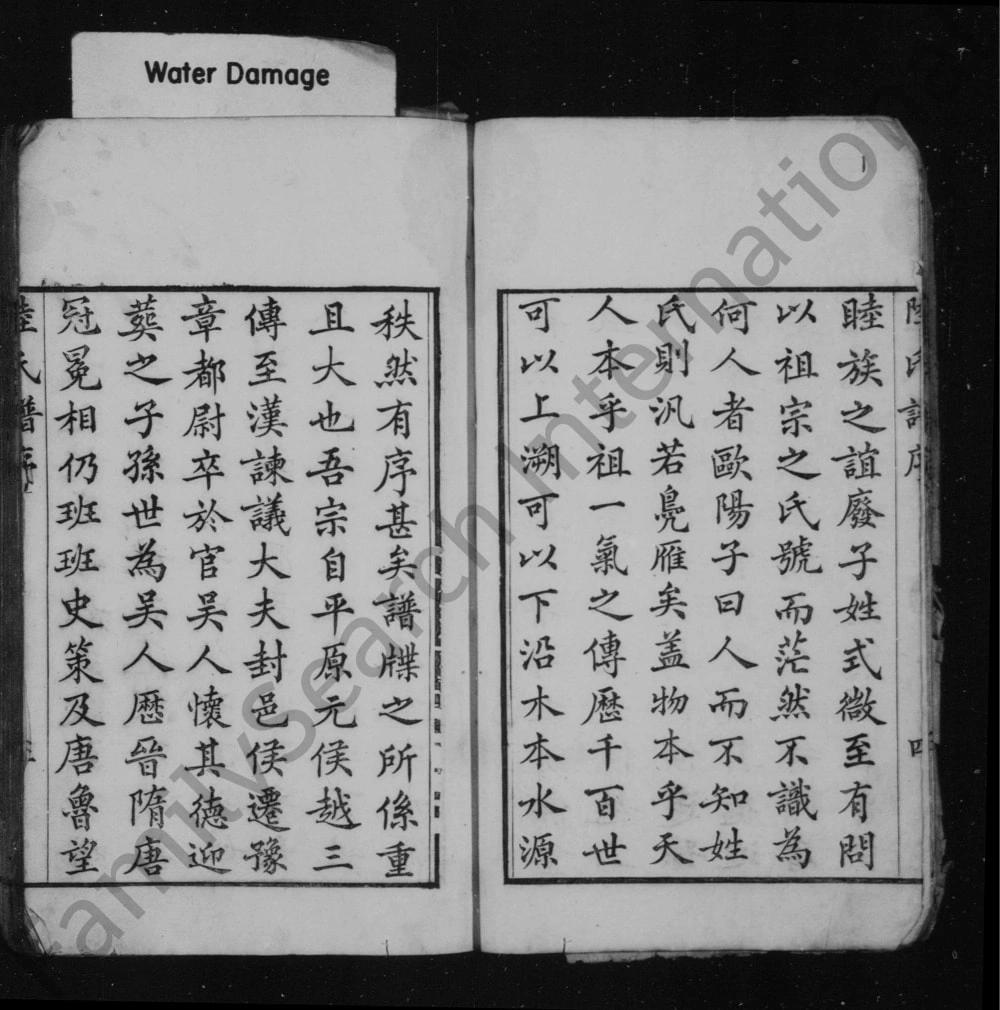 Water Damage
睦族之誼廢子姓式微至有問
以祖宗之氏號而茫然不識為
何人者歐陽子曰人而不知姓
氏則汎若鳧雁矣盖物本乎天
人本乎祖一氣之傳歷千百世
可以上溯可以下沿木本水源
秩然有序甚矣譜牒之所係重
且大也吾宗自平原元侯越三
傳至漢諫議大夫封邑侯遷豫
章都尉卒於官吴人懷其德迎
葬之子孫世為吴人歷晉隋唐
冠冕相仍班班史策及唐魯望
氏譜序
FamilySearch International